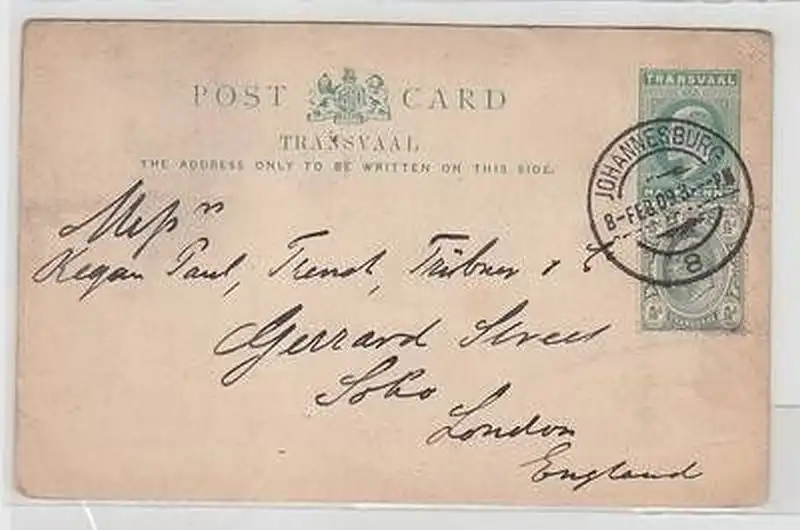 POST CARD
TRANSVAAL
THE ADDRESS ONLY TO BE WRITTEN ON THIS SIDE.
TRANSVAAL
JOHANNESBURG
8-FEB 09 3- PM
8
Messrs
Kegan Paul, Trench, Trübner & Co
Gerrard Street
Soho
London
England